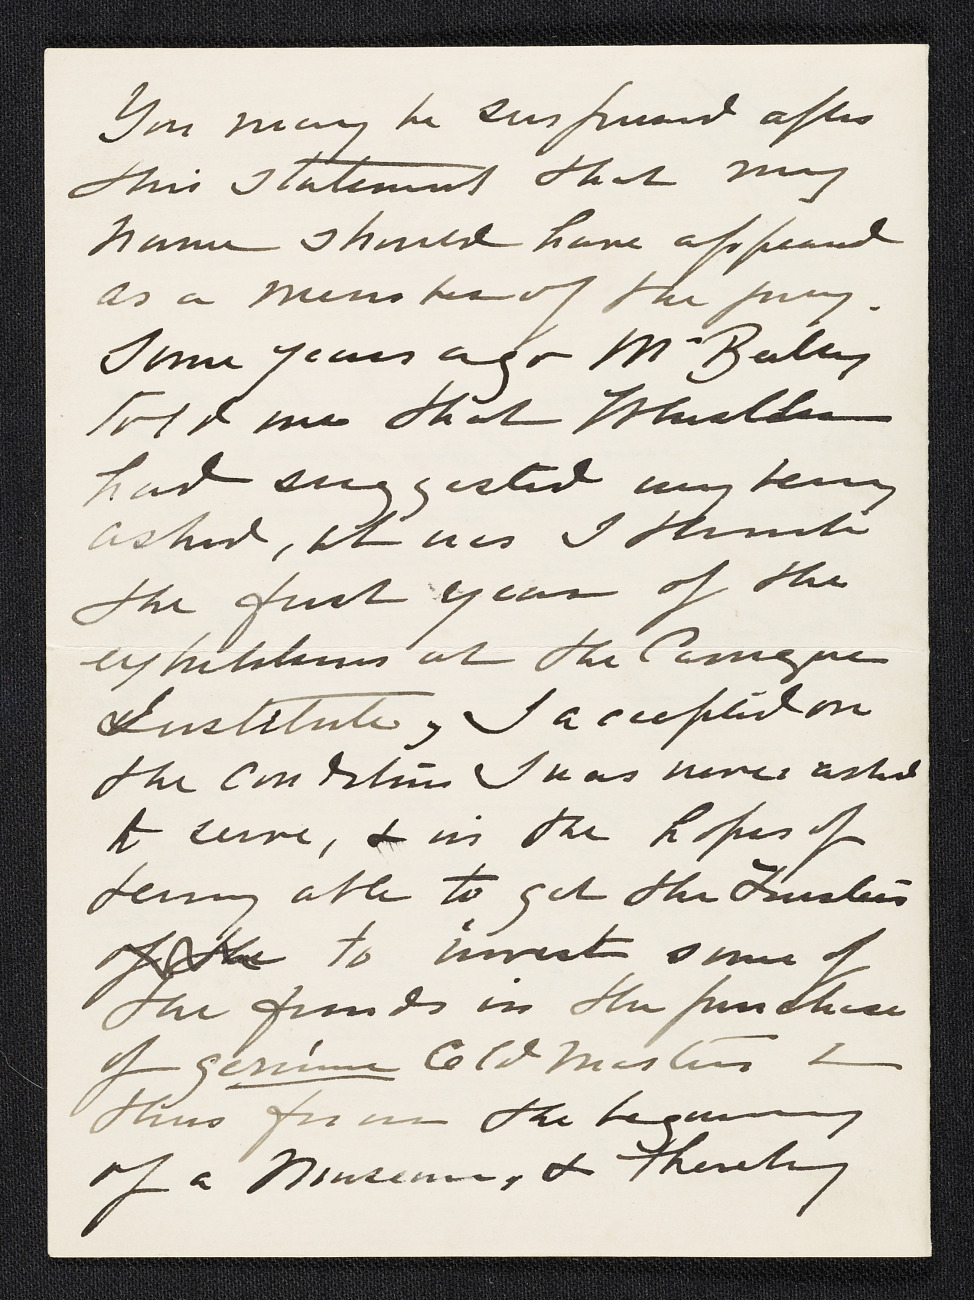 You may be surprised after
this statement that my
name should have appeared
as a member of the jury.
Some years ago Mr Beatty
told me that Whistler
had suggested my being
asked, it was I think
the first year of the
exhibitions at the Carnegie
Institute, I accepted on
the condition I was never asked
to serve, & in the hopes of
being able to get the Trustees
of the to invest some of
the funds in the purchase
of genuine Old Masters &
thus from the beginning
of a Museum, & thereby